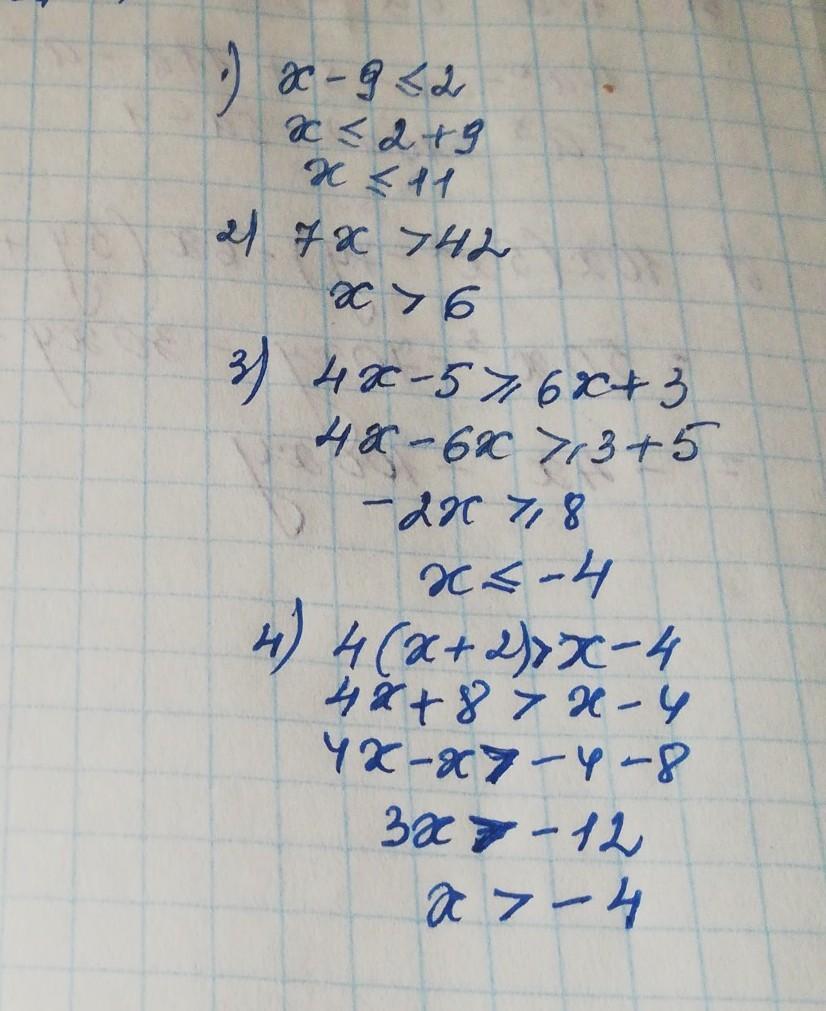 1) x - 9 ≤ 2
x ≤ 2 + 9
x ≤ 11
2) 7x > 42
x > 6
3) 4x - 5 ≥ 6x + 3
4x - 6x ≥ 3 + 5
-2x ≥ 8
x ≤ -4
4) 4(x + 2) > x - 4
4x + 8 > x - 4
4x - x > -4 - 8
3x > -12
x > -4